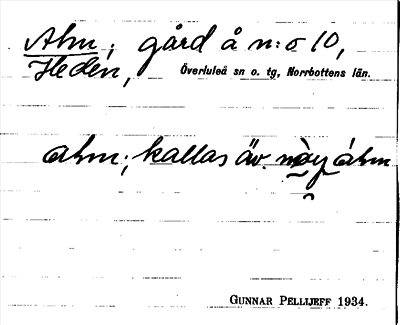 Alm; gård å n:o 10,
Heden, Överluleå sn o. tg, Norrbottens län.
alm; kallas äv. nøy álm
GUNNAR PELLIJEFF 1934.